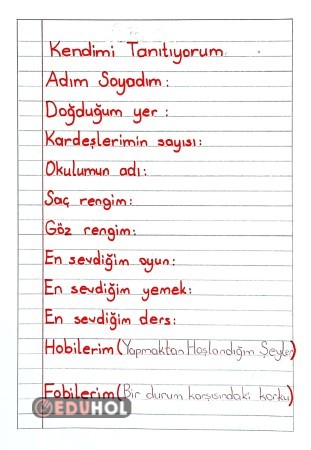 Kendimi Tanıtıyorum
Adım Soyadım:
Doğduğum yer :
Kardeşlerimin sayısı:
Okulumun adı:
Saç rengim:
Göz rengim:
En sevdiğim oyun:
En sevdiğim yemek:
En sevdiğim ders:
Hobilerim (Yapmaktan Hoşlandığım Şeyler)
Fobilerim (Bir durum karşısındaki korku)
EDUHOL